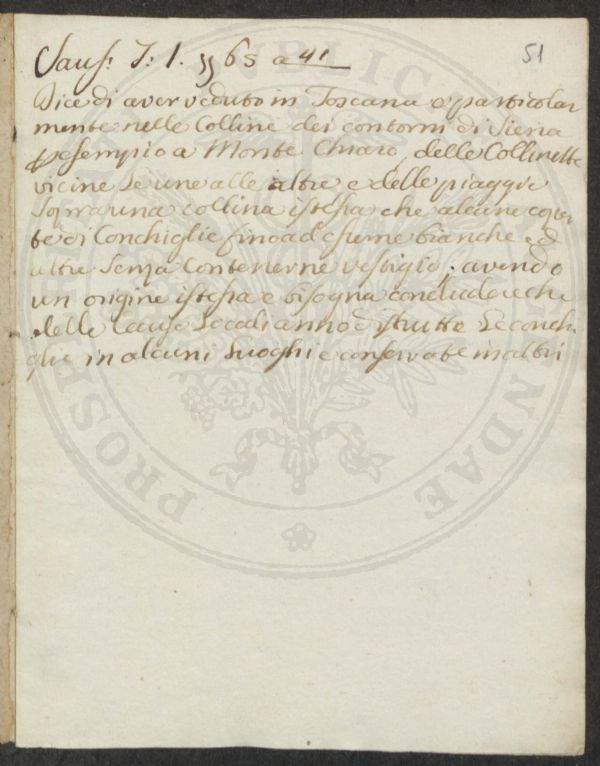 51
Sauss: T: 1. §§ 65 a 41
Dice di aver veduto in Toscana e particolar
mente nelle Colline dei contorni di Siena
p esempio a Monte Chiaro, delle Collinette
vicine le une alle altre e delle piagge
Sopra una collina istessa che alcune coper
te di Conchiglie fino ad esserne bianche ed
altre Senza Contenerne vestigio; avendo
un origine istessa e bisogna concludere che
delle Cause Locali anno distrutte Le conchi
glie in alcuni Luoghi e conservate in altri
PUBLIC
PROSPER
NDAE